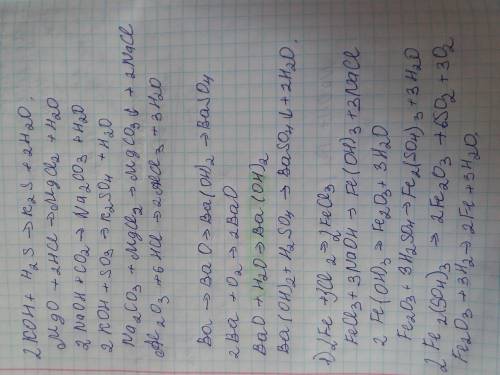 2 KOH + H₂S → K₂S + 2H₂O.
MgO + 2HCl → MgCl₂ + H₂O
2 NaOH + CO₂ → Na₂CO₃ + H₂O
2 KOH + SO₃ → K₂SO₄ + H₂O
Na₂CO₃ + MgCl₂ → MgCO₃ ↓ + 2NaCl
Al₂O₃ + 6HCl → 2AlCl₃ + 3H₂O
Ba → BaO → Ba(OH)₂ → BaSO₄
2Ba + O₂ → 2BaO
BaO + H₂O → Ba(OH)₂
Ba(OH)₂ + H₂SO₄ → BaSO₄ ↓ + 2H₂O.
1) 2Fe + 3Cl₂ → 2FeCl₃
FeCl₃ + 3NaOH → Fe(OH)₃ + 3NaCl
2 Fe(OH)₃ → Fe₂O₃ + 3H₂O
Fe₂O₃ + 3H₂SO₄ → Fe₂(SO₄)₃ + 3H₂O
2 Fe₂(SO₄)₃ → 2Fe₂O₃ + 6SO₂ + 3O₂
Fe₂O₃ + 3H₂ → 2Fe + 3H₂O.